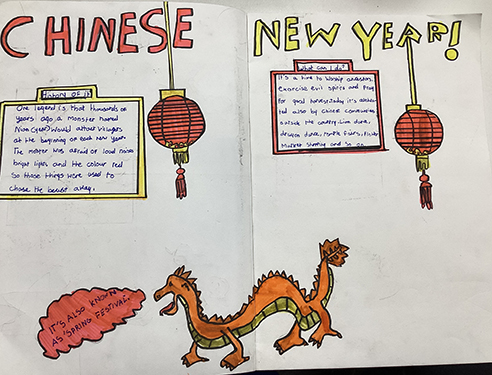 CHINESE
NEW YEAR!
History OF It
One legend is that thousands OF
years ago, a Monster named
Nian (year) would attack villages
at the beginning on each new year
The monster was afraid of loud noise
bright lights and the colour red
So those things were used to
chase the beast away.
What can I do?
It's a time to worship ancestors
Exorcise evil spirits and Pray
for good harvest. today it's celebrated
also by Chinese communities
outside the country. Lion dance,
dragon dance, temple fairs, Flower
Market shopping and so on
IT'S ALSO KNOWN
AS 'SPRING FESTIVAL'.